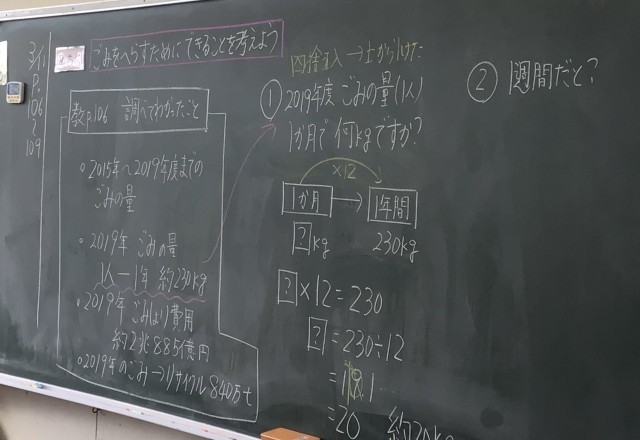 P
106
～
109
ごみをへらすためにできることを考えよう
教p.106 調べてわかったこと
・2015年〜2019年度までの
ごみの量
・2019年 ごみの量
1人一1年 約230kg
・2019年 ごみしょり費用
約2兆885億円
・2019年のごみ→リサイクル 840万t
四捨五入→上から1けた
① 2019年度 ごみの量(1人)
1か月で何kgですか?
×12
1か月 → 1年間
?kg 230kg
?×12=230
?=230÷12
=191…
=20 約20kg
② 1週間だと?